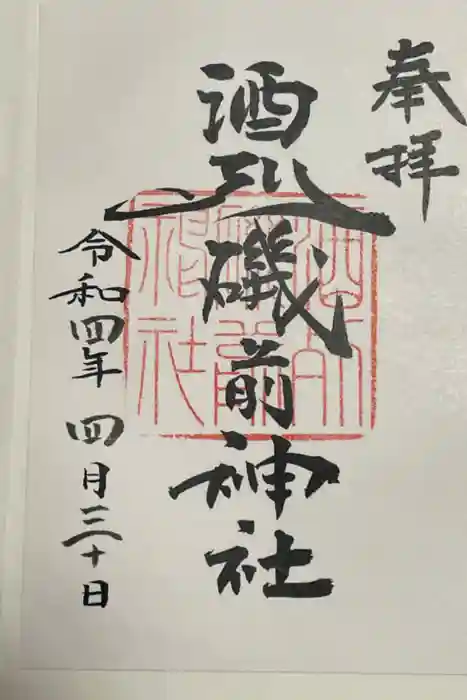 奉拝
酒列磯前神社
酒列
磯前
神社
令和四年 四月三十日